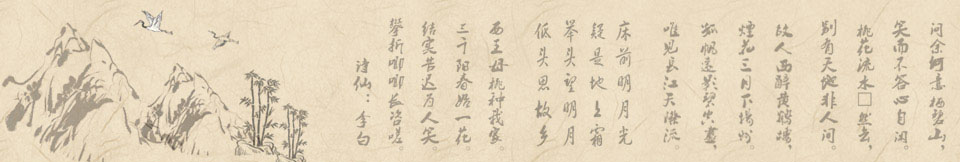 问余何意栖碧山,
笑而不答心自闲。
桃花流水□然去,
别有天地非人间。
故人西辞黄鹤楼,
烟花三月下扬州。
孤帆远影碧空尽,
唯见长江天际流。
床前明月光
疑是地上霜
举头望明月
低头思故乡
西王母桃种我家,
三千阳春始一花。
结实苦迟为人笑,
攀折唧唧长咨嗟。
诗仙：李白